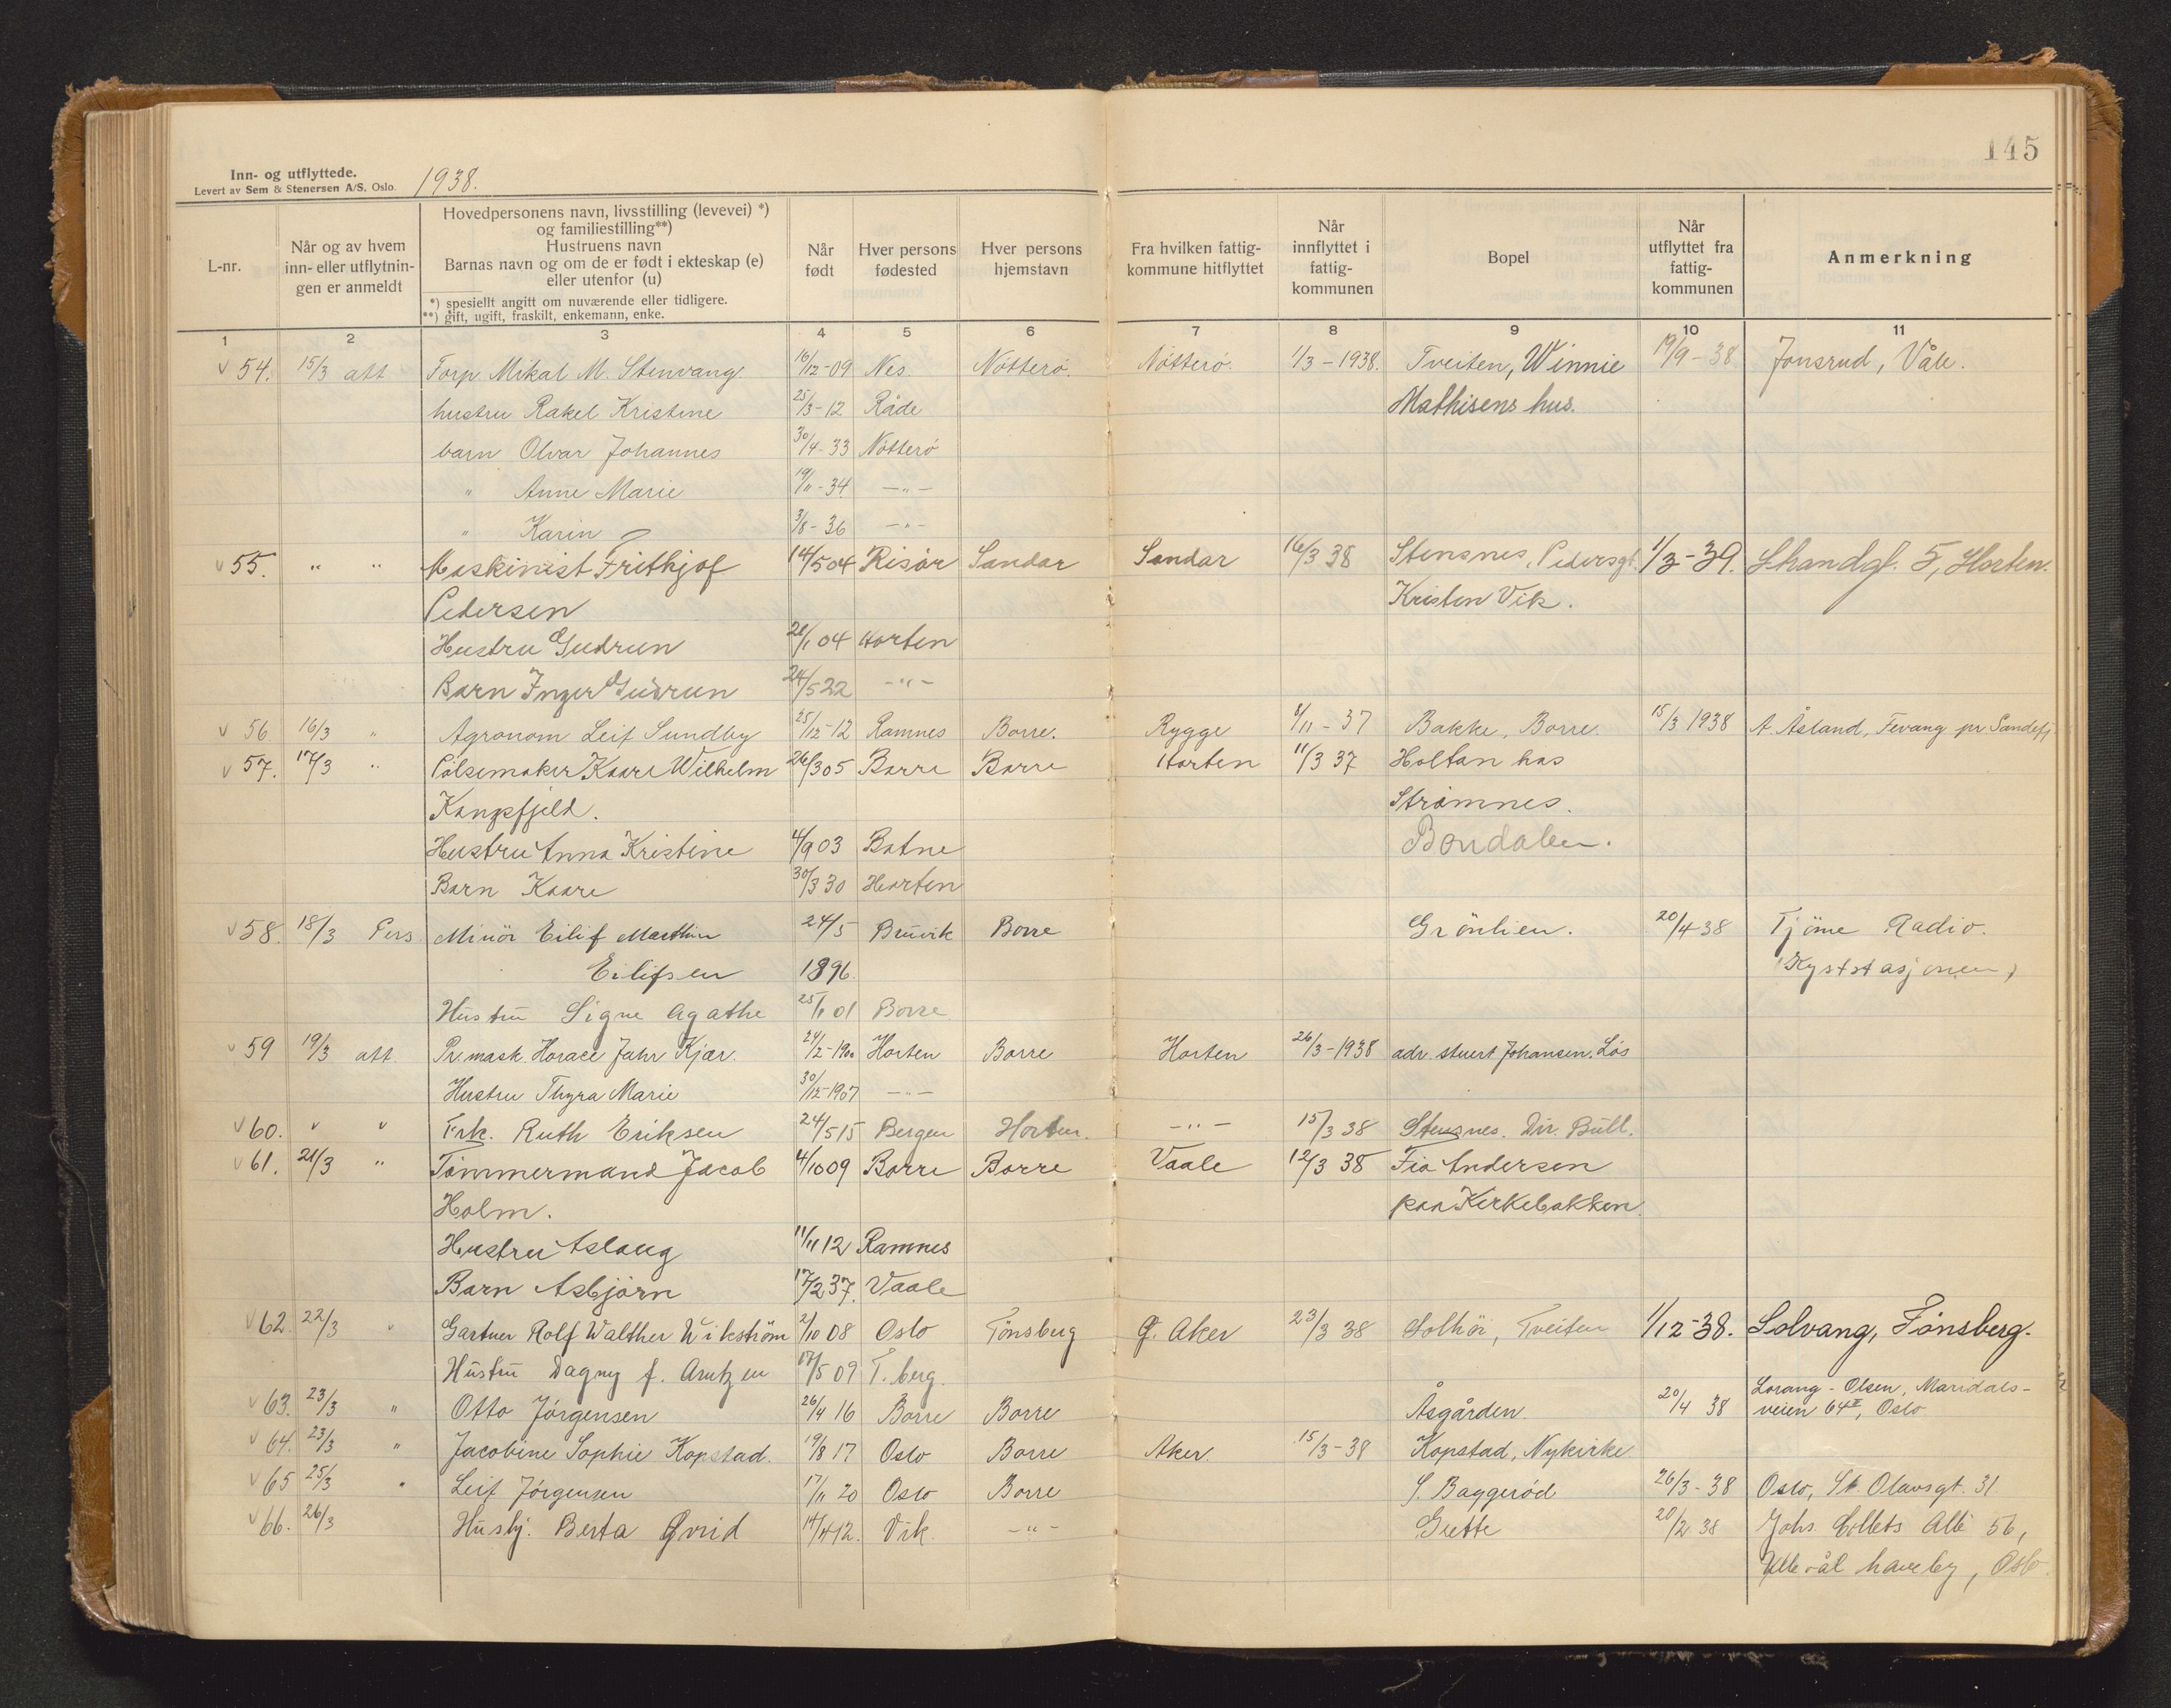 145
Inn- og utflyttede.
Levert av Sem & Stenersen A/S, Oslo. 1938.
L-nr.
Når og av hvem inn- eller utflytnin-gen er anmeldt
Hovedpersonens navn, livsstilling (levevei) *) og familiestilling**)
Hustruens navn
Barnas navn og om de er født i ekteskap (e) eller utenfor (u)
*) spesielt angitt om nuværende eller tidligere.
**) gift, ugift, fraskilt, enkemann, enke.
Når født
Hver persons fødested
Hver persons hjemstavn
Fra hvilken fattig-kommune hitflyttet
Når innflyttet i fattig-kommunen
Bopel
Når utflyttet fra fattig-kommunen
Anmerkning
1 2 3 4 5 6 7 8 9 10 11
54. 15/3 att Torp Mikal M. Stenvang 16/12-09 Nes Nötterö. Nötterö. 1/3-1938. Tveiten, Winnie 19/9-38 Jonsrud, Våle.
hustru Rakel Kristine 25/3-12 Råde Mathisens hus.
barn Olvar Johannes 30/4-33 Nötterö
" Anne Marie 19/11-34 -"-
" Karin 3/8-36 -"-
55. " " Maskinist Frithjof 14/5 04 Risør Sandar Sandar 16/3 38 Stensnes, Pedersgt. 1/3-39. Strandgt. 5, Horten.
Pedersen Kristen Vik.
Hustru Gudrun 21/1 04 Horten
Barn Inger Gudrun 24/5 22 -"-
56 16/3 " Agronom Leif Sundby 25/12-12 Ramnes Borre. Rygge 8/11-37 Bakke, Borre. 15/3 1938 A. Åsland, Fevang pr. Sandefj.
57. 17/3 " Pølsemaker Kaare Wilhelm 26/3 05 Borre Borre Horten 11/3 37 Holtan hos
Kongsfjeld. Strømnes.
Hustru Anna Kristine 4/9 03 Botne Bondalen.
Barn Kaare 30/3 30 Horten
58. 18/3 Pers. Minör Eilif Marthin 24/5 Bruvik Borre Grönlien. 20/4 38 Tjöme Radio.
Eilifsen 1896. (Kyststasjonen)
Hustru Signe Agathe 25/1 01 Borre
59 19/3 att. Pr. mask. Horace Jahr Kjær. 24/2-1900 Horten Borre Horten 26/3-1938 adr. stuert Johansen. Løs
Hustru Thyra Marie 30/12-1907 -"-
60. " " Frk. Ruth Eriksen 24/5 15 Bergen Horten. -"- 15/3 38 Stensnes. Dir. Bull.
61. 21/3 " Tømmermand Jacob 4/10 09 Borre Borre Vaale 12/3 38 Fia Andersen
Holm. paa Kirkebakken.
Hustru Aslaug 11/11 12 Ramnes
Barn Asbjørn 17/2 37. Vaale
62. 22/3 " Gartner Rolf Walther Wikström 2/10 08 Oslo Tönsberg Ø. Aker 23/3 38 Solhöi, Tveiten 1/12-38. Solvang, Tønsberg.
Hustru Dagny f. Arntzen 17/5 09 T. berg.
63. 23/3 " Otto Jørgensen 26/4 16 Borre Borre Åsgården. 20/4 38 Lorang-Olsen, Maridals-
veien 64 II, Oslo
64. 23/3 " Jacobine Sophie Kopstad. 19/8 17 Oslo Borre Aker. 15/3-38 Kopstad, Nykirke
65 25/3 " Leif Jørgensen 17/11 20 Oslo Borre S. Baggerød 26/3-38 Oslo, St. Olavsgt. 31
66. 26/3 Hushj. Berta Qvid 14/4 12. Vik. -"- Grette 20/2 38 Johs. Collets Allé 56,
Ullevål haveby, Oslo.